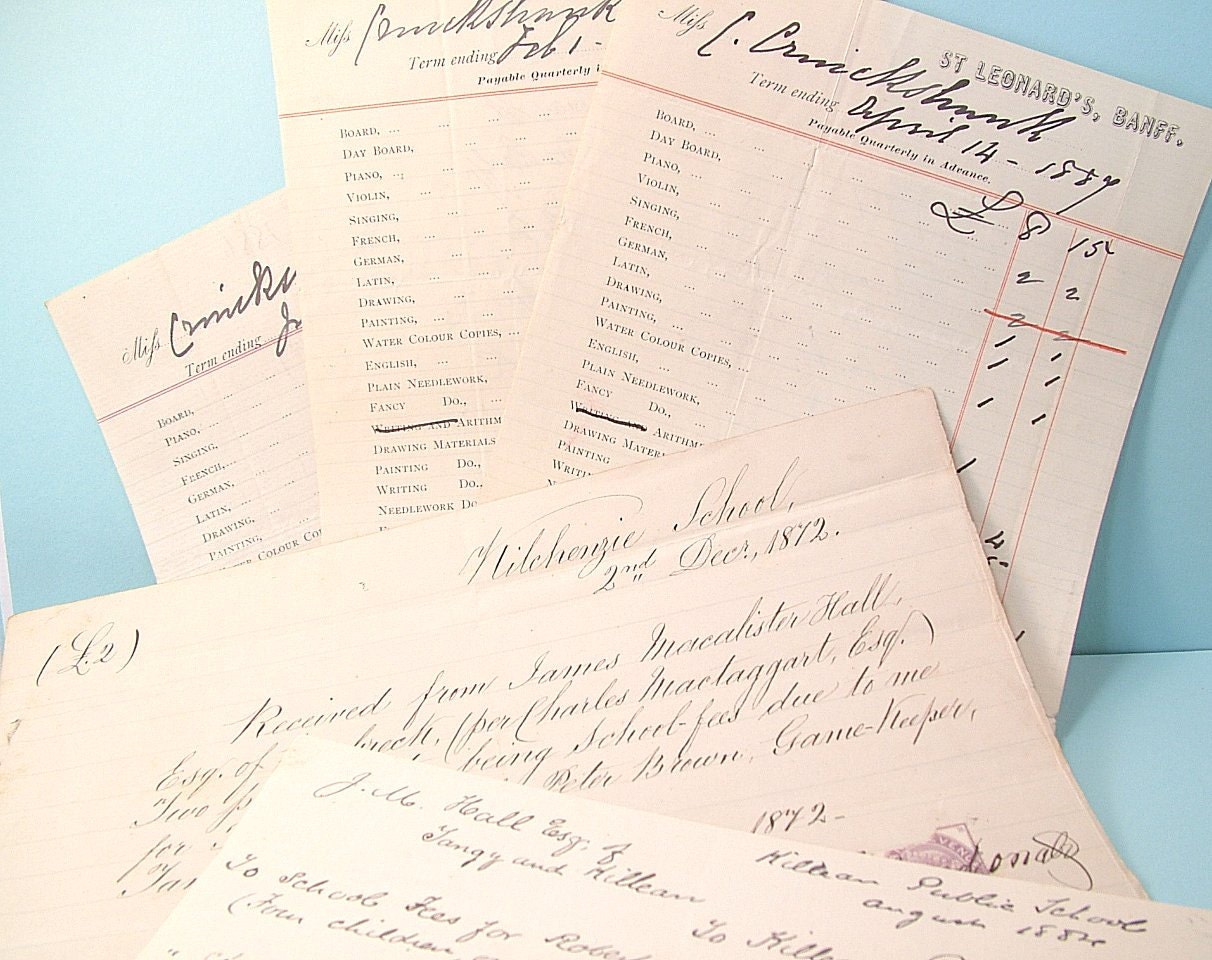 Miss Cruicksh
Term ending Jan
BOARD, ...
PIANO, ...
SINGING,
FRENCH, ...
GERMAN,
LATIN, ...
DRAWING,
PAINTING,
WATER COLOUR COP
Miss Cruickshank
Term ending Feb 1 -
Payable Quarterly i
BOARD, ...
DAY BOARD,
PIANO, ...
VIOLIN,
SINGING,
FRENCH,
GERMAN,
LATIN,
DRAWING,
PAINTING,
WATER COLOUR COPIES, ...
ENGLISH,
PLAIN NEEDLEWORK,
FANCY Do.,
WRITING AND ARITHM
DRAWING MATERIALS
PAINTING Do.,
WRITING Do.,
NEEDLEWORK Do
ST LEONARD'S, BANFF.
Miss C. Cruickshank
Term ending April 14 - 1889
Payable Quarterly in Advance.
BOARD, ...
DAY BOARD,
PIANO,
VIOLIN,
SINGING,
FRENCH,
GERMAN,
LATIN,
DRAWING,
PAINTING,
WATER COLOUR COPIES,
ENGLISH,
PLAIN NEEDLEWORK,
FANCY Do.,
WRITING AND ARITHME
DRAWING MATER
PAINTING
WRITI
£ 8 15
2 2
2 2
1 1
1 1
1 1
1
4
Kilchenzie School,
2nd Decr., 1872.
(£2)
Received from James Macalister Hall,
Esq. of breck, (per Charles Mactaggart, Esq.)
Two p (being School-fees due to me
for Peter Brown, Game-Keeper,
Tan 1872-
onald
J. M. Hall Esq. of
Tangy and Killean
Killean Public School
August 1884
To School Fees for Rober
(Four children
To Kille